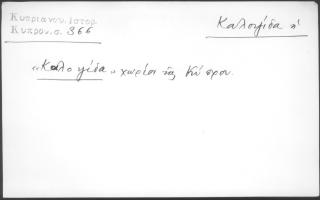 Κυπριανου. Ιστορ.
Κυπρου. σ. 366
Καλοψίδα ἡ
"Καλοψίδα" χωρίον τῆς Κύπρου.